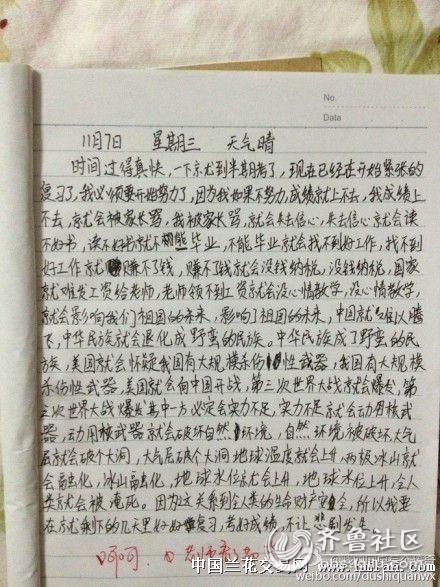 No.
Data
11月7日 星期三 天气晴
时间过得真快,一下京尤到半期考了,现在已经进开始紧张的
复习了,我必须要开始努力了,因为我如果不努力,成绩就上不去,我成绩上
不去,就会被家长骂,我被家长骂,就会失去信心,失去信心就会读
不好书,读不好书就不能毕业,不能毕业就会找不到好工作,找不到
好工作就赚不了钱,赚不了钱就会没钱纳税,没钱纳税,国家
就难发工资给老师,老师领不到工资就会没心情教学,没心情教学,
就会影响我们祖国的未来,影响了祖国的未来,中国就难以腾
飞,中华民族就会退化成野蛮的民族。中华民族成了野蛮的民
族,美国就会怀疑我国有大规模杀伤性武器,我国有大规模
杀伤性武器,美国就会向中国开战,第三次世界大战就会爆发,第
三次世界大战爆发其中一方必定会实力不足,实力不足就会动用核武
器,动用核武器就会破坏自然环境,自然环境被破坏,大气
层就会破个大洞,大气层破个大洞地球温度就会上升,两极冰山就
会融化,冰山融化,地球水位就会上升,地球水位上升,全人
类就会被淹死。因为这关系到全人类的生命财产安全,所以我要
在京尤剩下的几天里好好复习,考好成绩,不让悲剧发生。
呵呵。
齐鲁社区
中国兰花交易网 www.hmlan.com